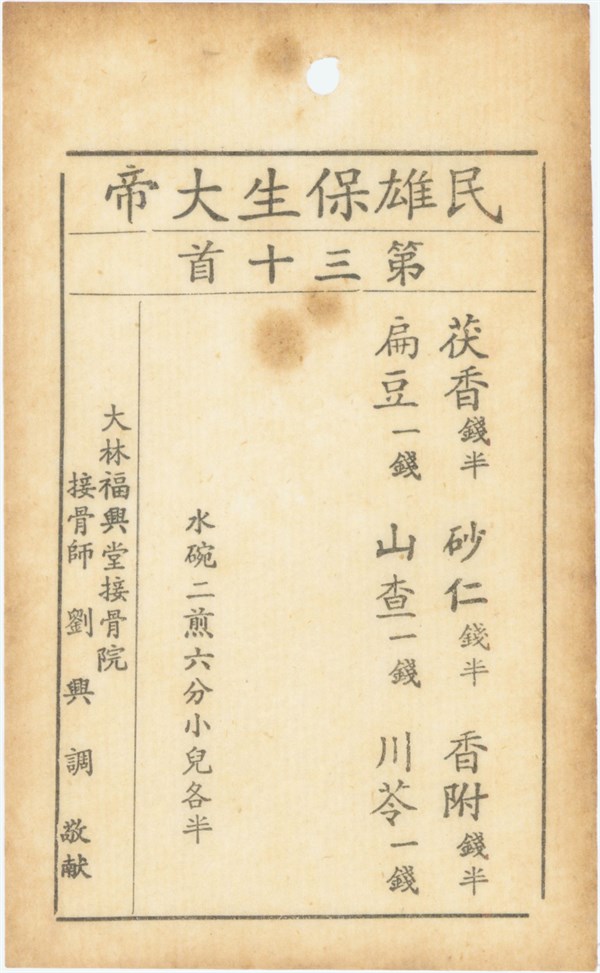 民雄保生大帝
第三十首
茯香錢半 砂仁錢半 香附錢半
扁豆一錢 山查一錢 川苓一錢
水碗二煎六分小兒各半
大林福興堂接骨院
接骨師 劉興調 敬献